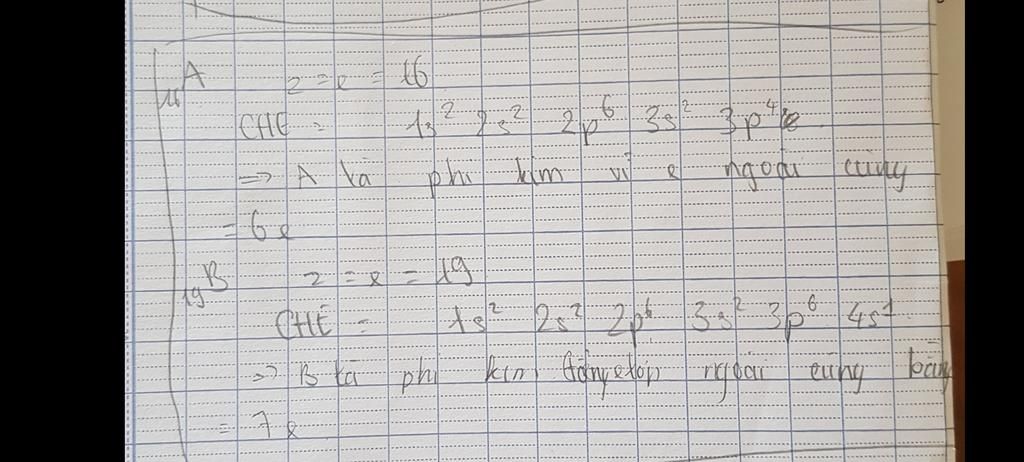 16A z = e = 16
CHE = 1s² 2s² 2p⁶ 3s² 3p⁴
=> A là phi kim vì e ngoài cùng
= 6e
19B z = e = 19
CHE = 1s² 2s² 2p⁶ 3s² 3p⁶ 4s¹
=> B là phi kim ngoài cùng bằng
= 7e